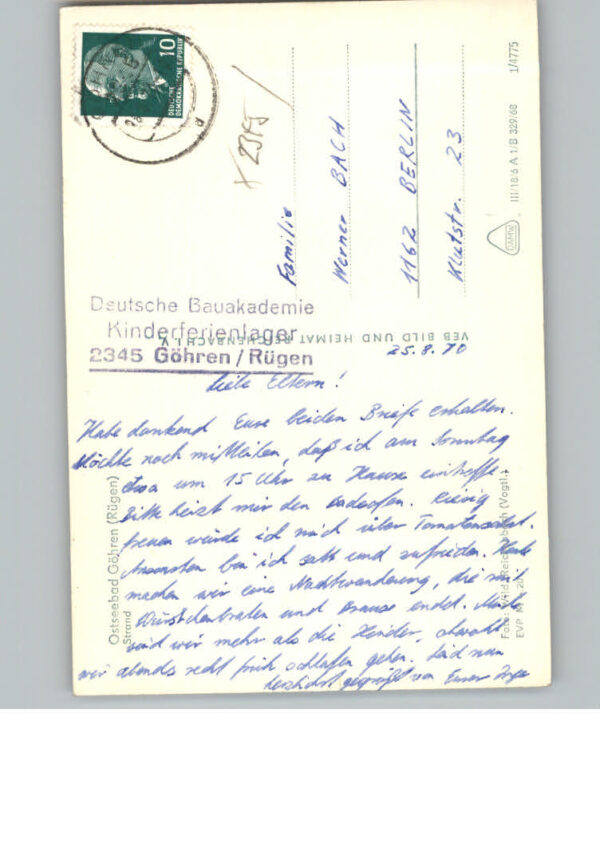 10
DEUTSCHE
DEMOKRATISCHE REPUBLIK
x 2345
Familie
Werner BACH
1162 BERLIN
Klutstr. 23
III/18/6 A 1/B 329/68 1/4775
VEB BILD UND HEIMAT REICHENBACH i. V.
Deutsche Bauakademie
Kinderferienlager
2345 Göhren/Rügen
25.8.70
Liebe Eltern!
Habe dankend Eure beiden Briefe erhalten.
Möchte noch mitteilen, daß ich am Sonntag
etwa um 15 Uhr zu Hause eintreffe.
Bitte heizt mir den Badeofen. Riesig
freuen würde ich mich über Tomatensalat.
Ansonsten bin ich satt und zufrieden. Heute
machen wir eine Nachtwanderung, die mit
Würstchenbraten und Brause endet. Müde
sind wir mehr als die Kinder, obwohl
wir abends recht früh schlafen gehen. Seid nun
herzlichst gegrüßt von Eurer
Ostseebad Göhren (Rügen)
Strand
Foto: Reichenbach (Vogtl.)
EVP